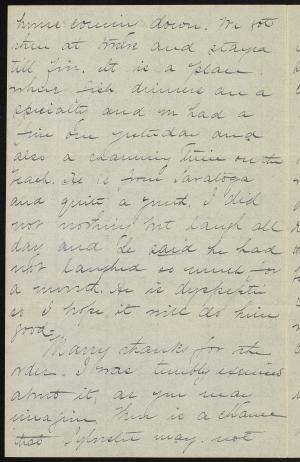 home coming down. We got
there at and stayed
till five. It is a place
where fish dinners are a
specialty and we had a
fine one yesterday and
also a charming time on the
beach. He is from Saratoga
and quite a youth. I did
not nothing but laugh all
day and he said he had
not laughed so much for
a month. He is dyspeptic
so I hope it will do him
good.
Many thanks for the
order. I was terribly exercised
about it, as you may
imagine. There is a chance
that Sylvester may not